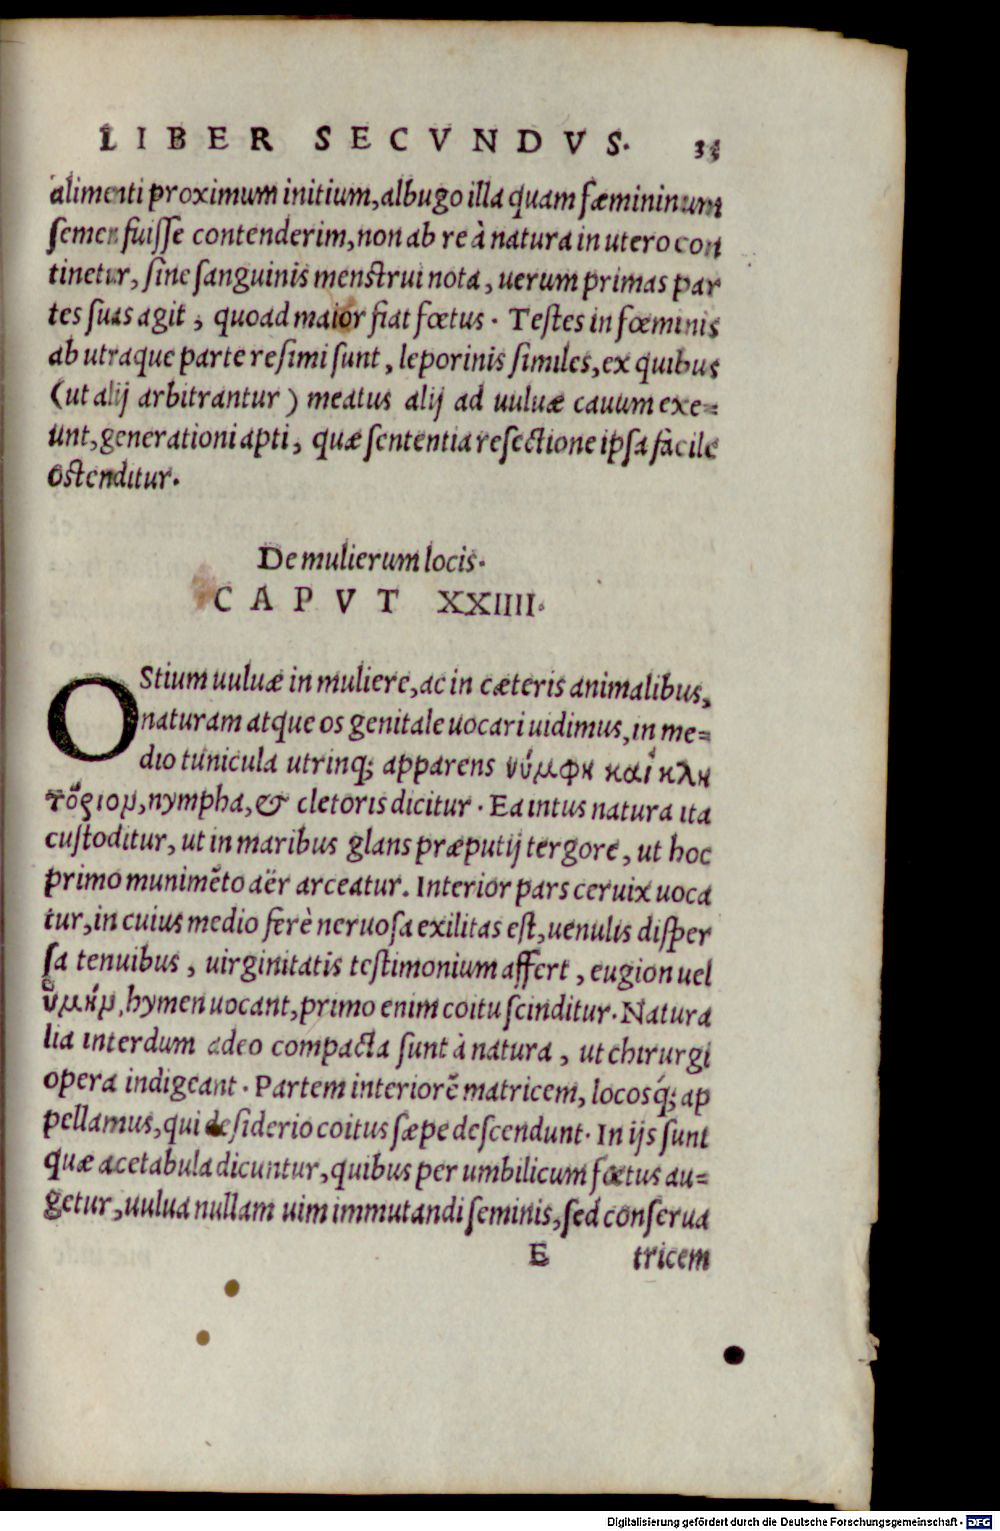 LIBER SECVNDVS. 33
alimenti proximum initium, albugo illa quam fæmininum
semen fuisse contenderim, non ab re à natura in utero con
tinetur, sine sanguinis menstrui nota, uerum primas par
tes suas agit, quoad maior fiat fœtus. Testes in fœminis
ab utraque parte resimi sunt, leporinis similes, ex quibus
(ut alij arbitrantur) meatus alij ad uuluæ cauum exe=
unt, generationi apti, quæ sententia resectione ipsa facile
ostenditur.
De mulierum locis.
CAPVT XXIIII.
OStium uuluæ in muliere, ac in cæteris animalibus,
naturam atque os genitale uocari uidimus, in me=
dio tunicula utrinq; apparens νύμφη καὶ κλη
τόριον, nympha, & cletoris dicitur. Ea intus natura ita
custoditur, ut in maribus glans præputij tergore, ut hoc
primo munimēto aër arceatur. Interior pars ceruix uoca
tur, in cuius medio ferè neruosa exilitas est, uenulis disper
sa tenuibus, uirginitatis testimonium affert, eugion uel
ὑμήν, hymen uocant, primo enim coitu scinditur. Natura
lia interdum adeo compacta sunt à natura, ut chirurgi
opera indigeant. Partem interiorē matricem, locosq́; ap
pellamus, qui desiderio coitus sæpe descendunt. In ijs sunt
quæ acetabula dicuntur, quibus per umbilicum fœtus au=
getur, uulua nullam uim immutandi seminis, sed conserua
E tricem
Digitalisierung gefördert durch die Deutsche Forschungsgemeinschaft - DFG